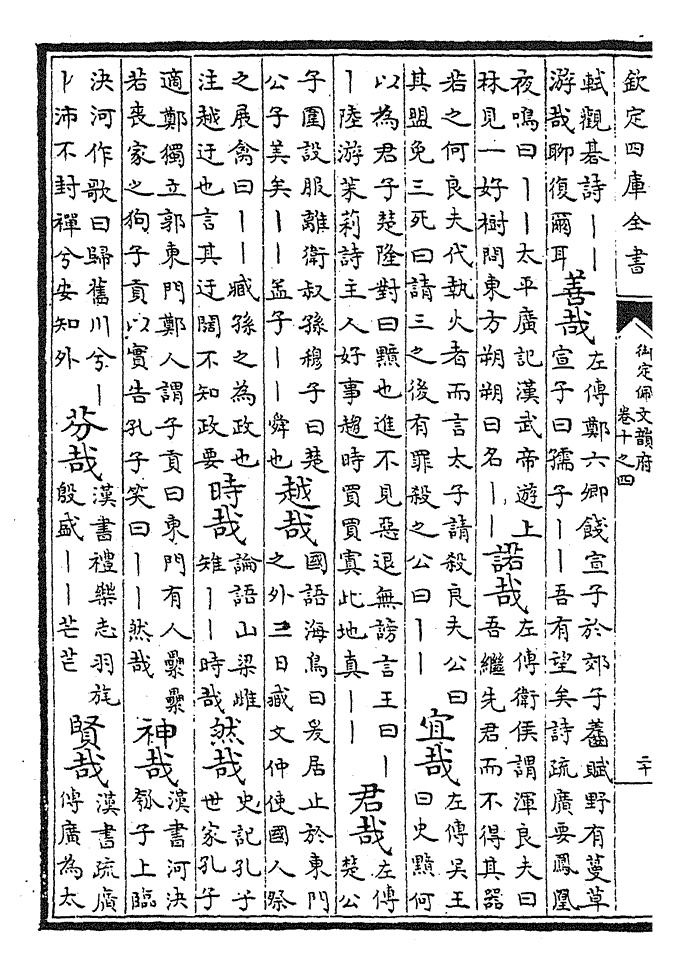 欽定四庫全書
御定佩文韻府
卷十之四
二十
軾觀棊詩丨丨
游哉聊復爾耳
善哉
左傳鄭六卿餞宣子於郊子齹賦野有蔓草
宣子曰孺子丨丨吾有望矣詩疏廣要鳳凰
夜鳴曰丨丨太平廣記漢武帝遊上
林見一好樹問東方朔朔曰名丨丨
諾哉
左傳衛侯謂渾良夫曰
吾繼先君而不得其器
若之何良夫代執火者而言太子請殺良夫公曰
其盟免三死曰請三之後有罪殺之公曰丨丨
宜哉
左傳吳王
曰史黯何
以為君子楚隆對曰黯也進不見惡退無謗言王曰丨
丨陸游茉莉詩主人好事趨時買買寘此地真丨丨
君哉
左傳
楚公
子圍設服離衛叔孫穆子曰楚
公子美矣丨丨孟子丨丨舜也
越哉
國語海鳥曰爰居止於東門
之外三日臧文仲使國人祭
之展禽曰丨丨臧孫之為政也
注越迂也言其迂闊不知政要
時哉
論語山梁雌
雉丨丨時哉
然哉
史記孔子
世家孔子
適鄭獨立郭東門鄭人謂子貢曰東門有人纍纍
若喪家之狗子貢以實告孔子笑曰丨丨然哉
神哉
漢書河決
瓠子上臨
決河作歌曰歸舊川兮丨
丨沛不封禪兮安知外
芬哉
漢書禮樂志羽旄
殷盛丨丨芒芒
賢哉
漢書疏廣
傳廣為太